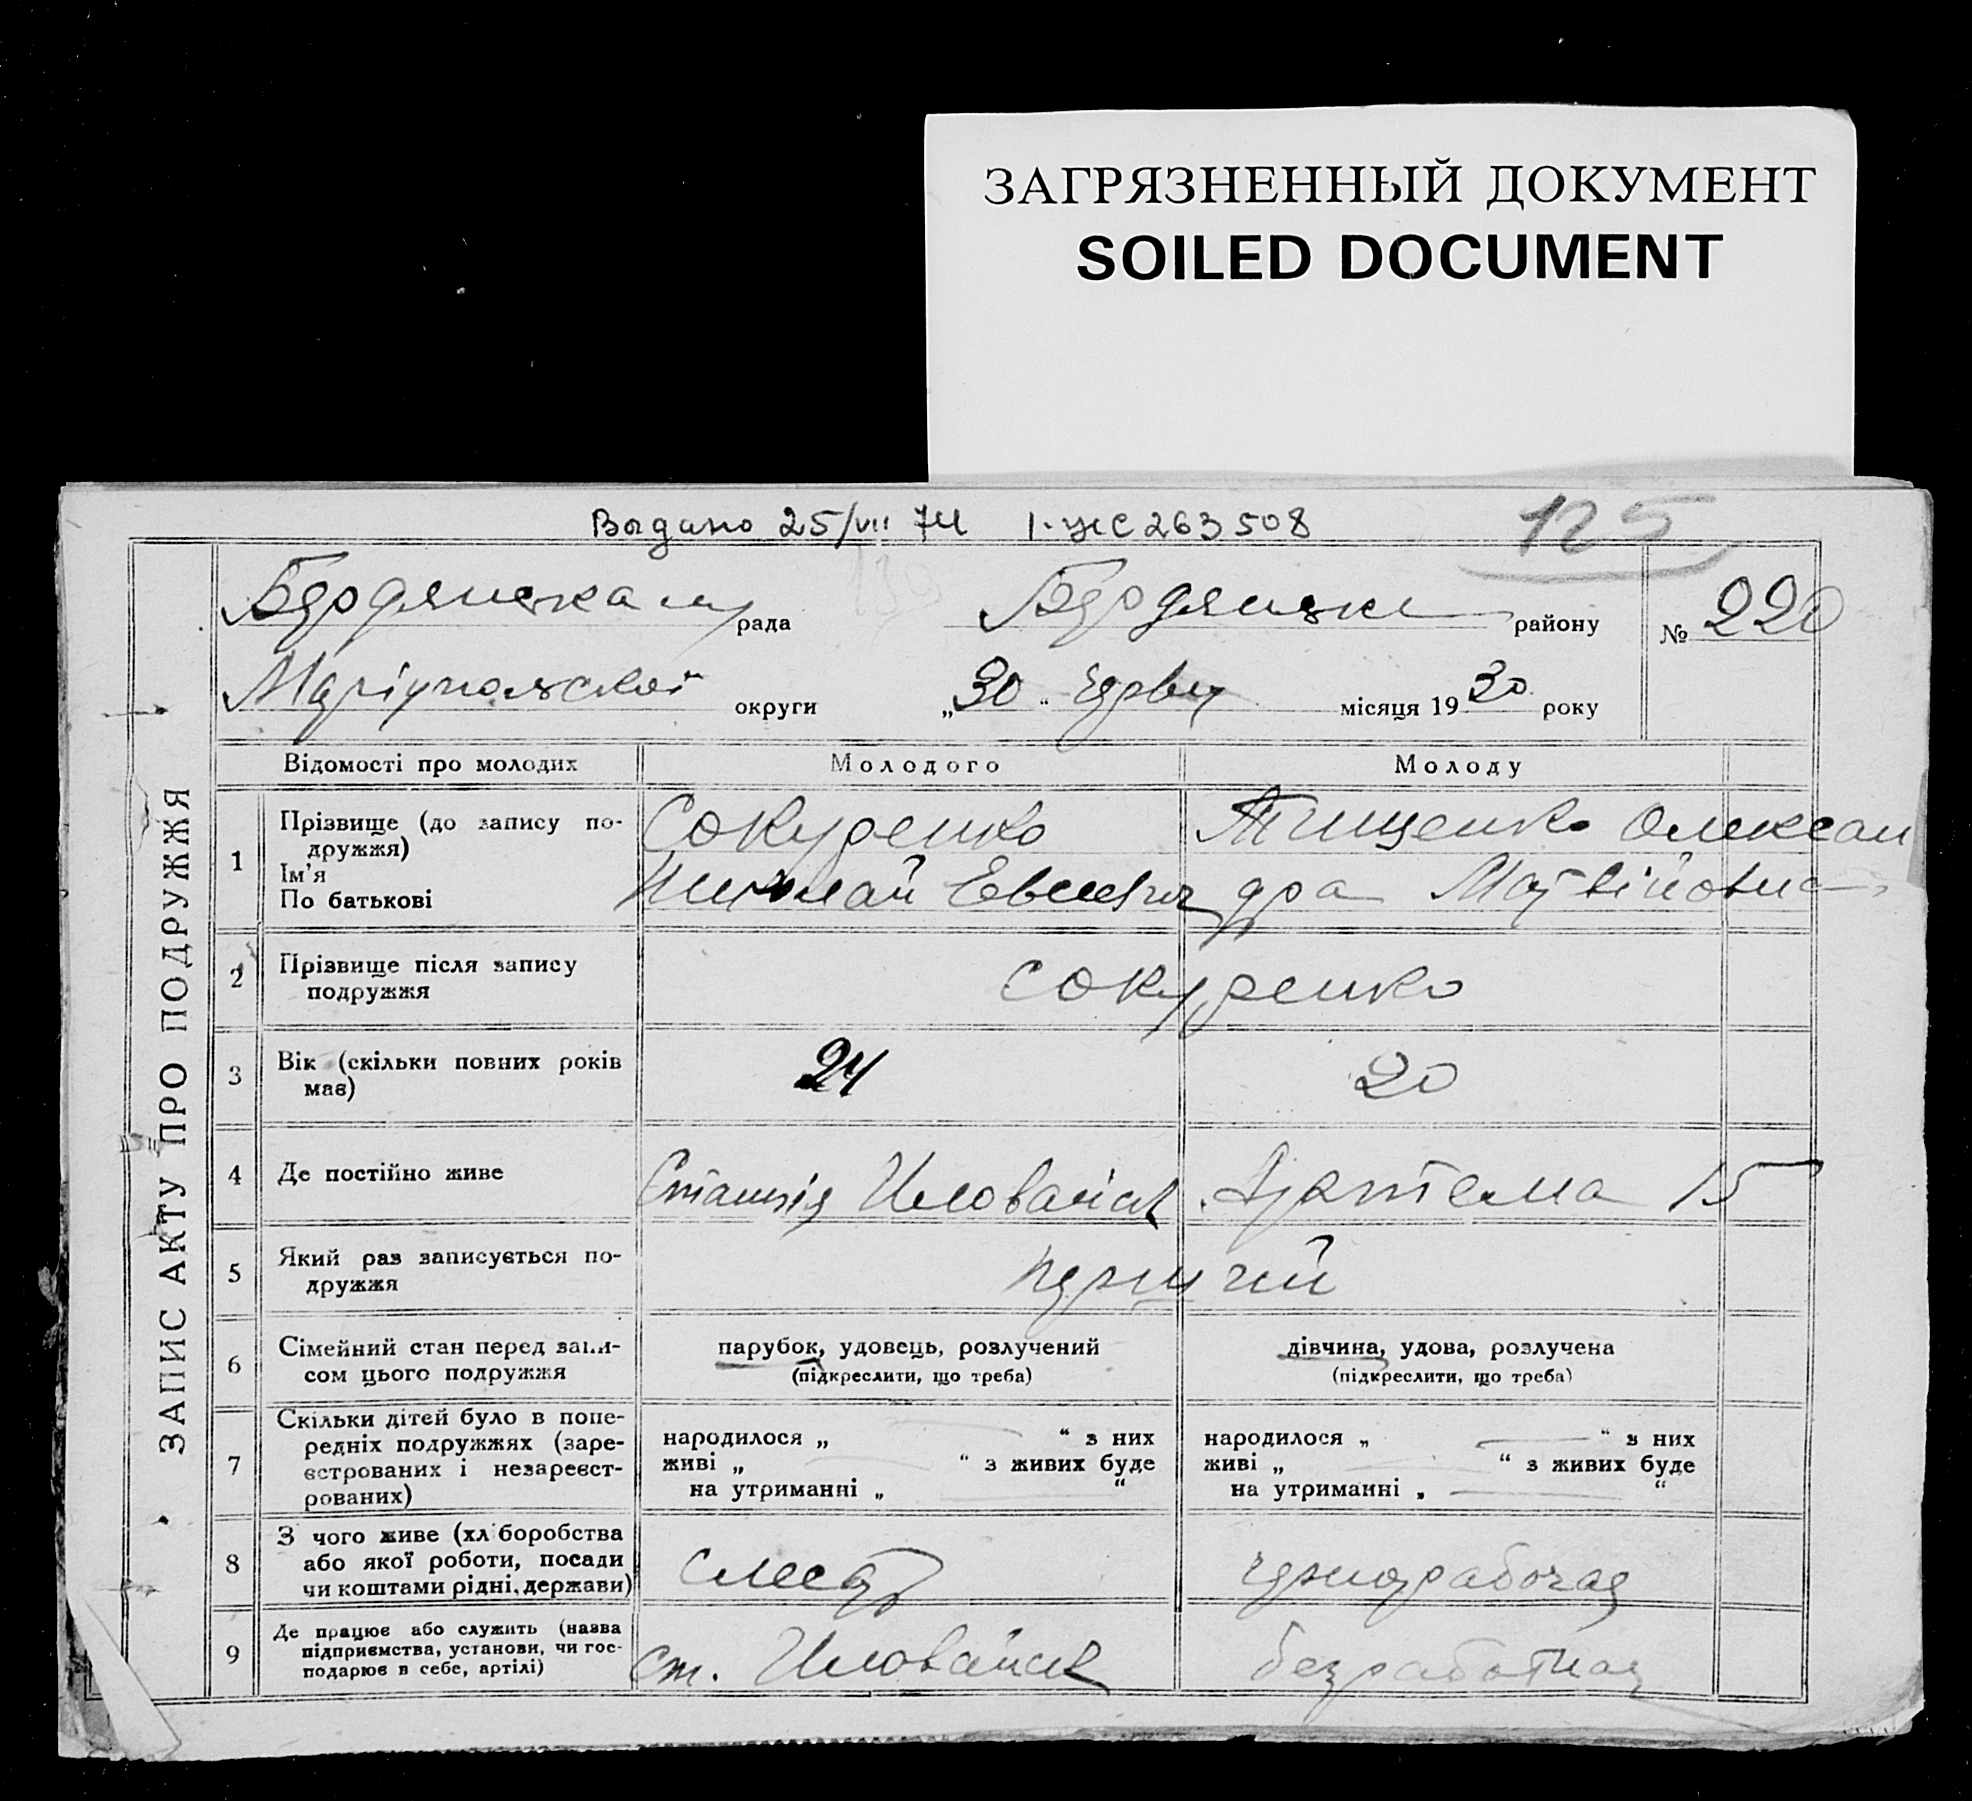 ЗАГРЯЗНЕННЫЙ ДОКУМЕНТ
SOILED DOCUMENT
Выдано 25/VII 74 І-ЖС 263508
125
Бердянська м рада Бердянськ району № 220
Маріупольської округи „30“ червн місяця 1930 року
ЗАПИС АКТУ ПРО ПОДРУЖЖЯ
Відомості про молодих Молодого Молоду
1 Прізвище (до запису по-
дружжя)
Ім'я
По батькові
Сокуренко
Николай
Тищенко Олексан
дра Матвійовна
2 Прізвище після запису
подружжя
Сокуренко
3 Вік (скільки повних років
має)
24 20
4 Де постійно живе Станція Иловайськ Артема 15
5 Який раз записується по-
дружжя
перший
6 Сімейний стан перед запи-
сом цього подружжя
парубок, удовець, розлучений
(підкреслити, що треба)
дівчина, удова, розлучена
(підкреслити, що треба)
7 Скільки дітей було в попе-
редніх подружжях (заре-
єстрованих і незареєст-
рованих)
народилося „ — “ з них
живі „ — “ з живих буде
на утриманні „ — “
народилося „ — “ з них
живі „ — “ з живих буде
на утриманні „ — “
8 З чого живе (хліборобства
або якої роботи, посади
чи коштами рідні, держави)
слесар
чернорабочая
9 Де працює або служить (назва
підприємства, установи, чи гос-
подарює в себе, артілі)
ст. Иловайск
безработная